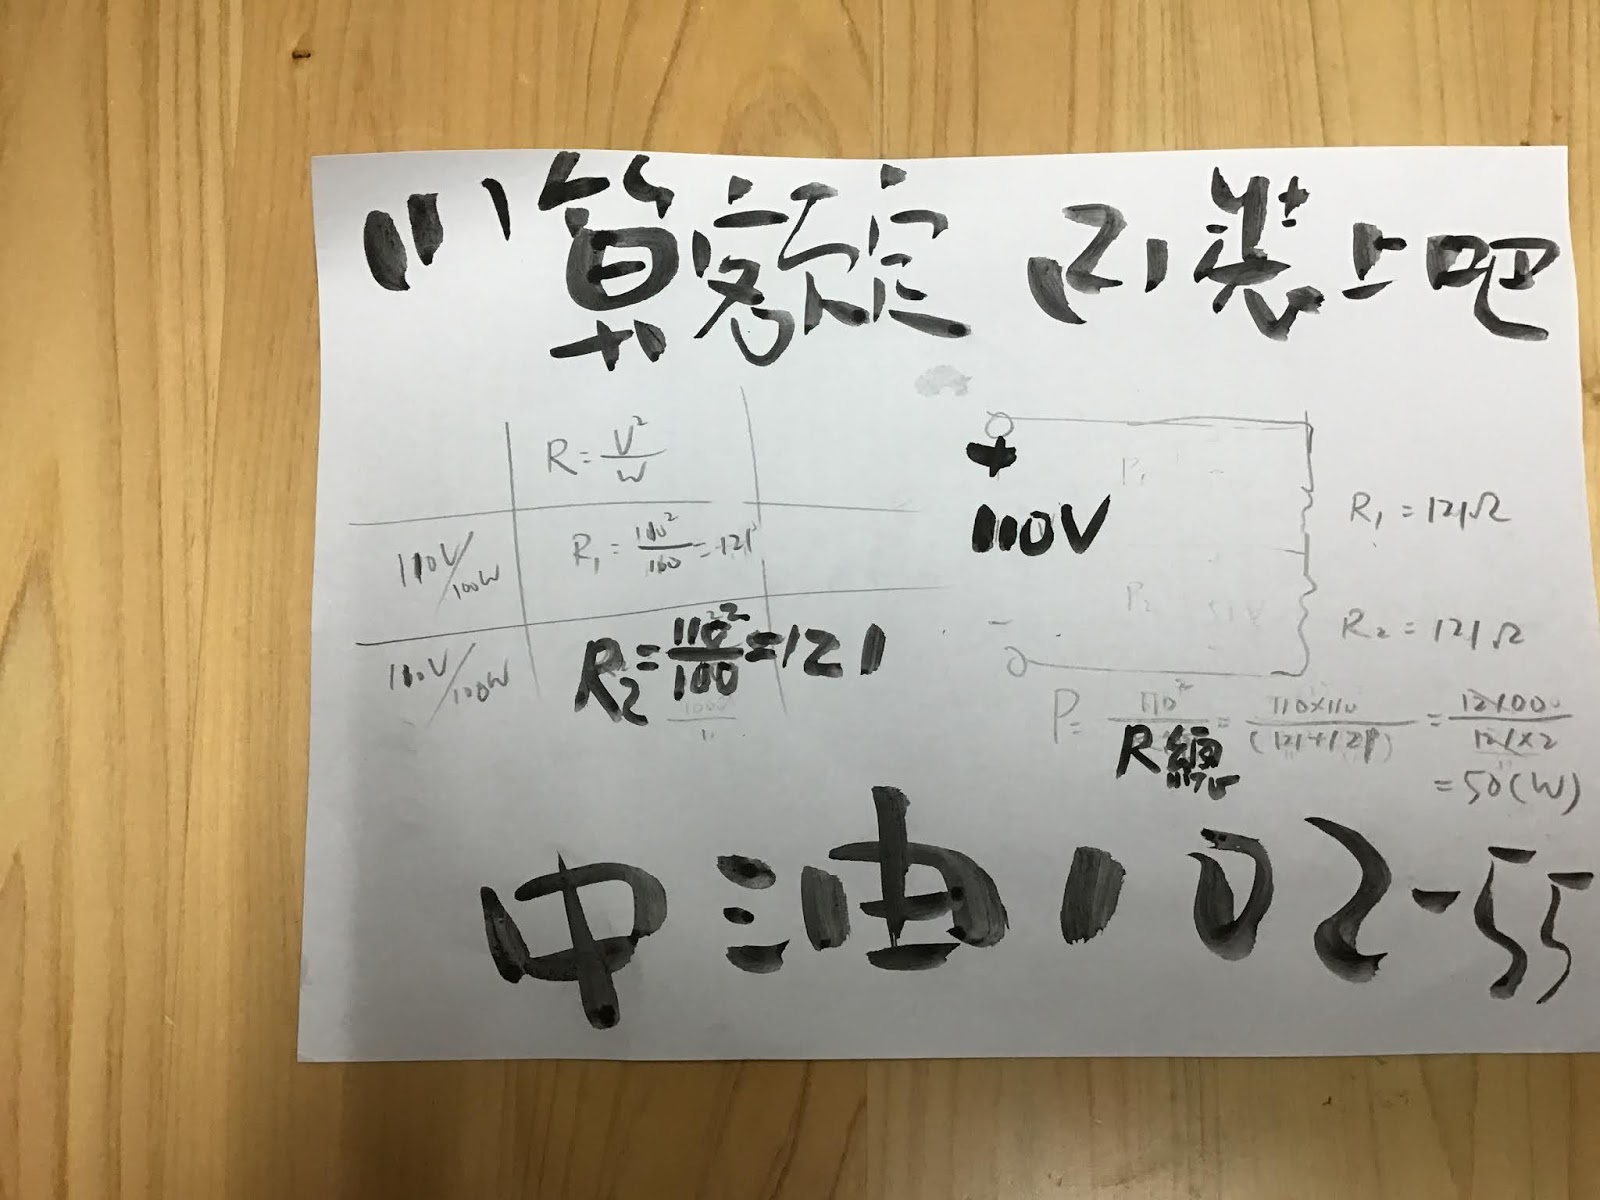 (1) 算額定 (2) 裝上吧
R = V²/W
110V/100W R₁ = 110²/100 = 121
110V/100W R₂ = 110²/100 = 121
+
110V
-
P₁
P₂
R₁ = 121Ω
R₂ = 121Ω
P = 110²/R總 = 110×110/(121+121) = 12100/121×2
= 50(W)
中油102-55